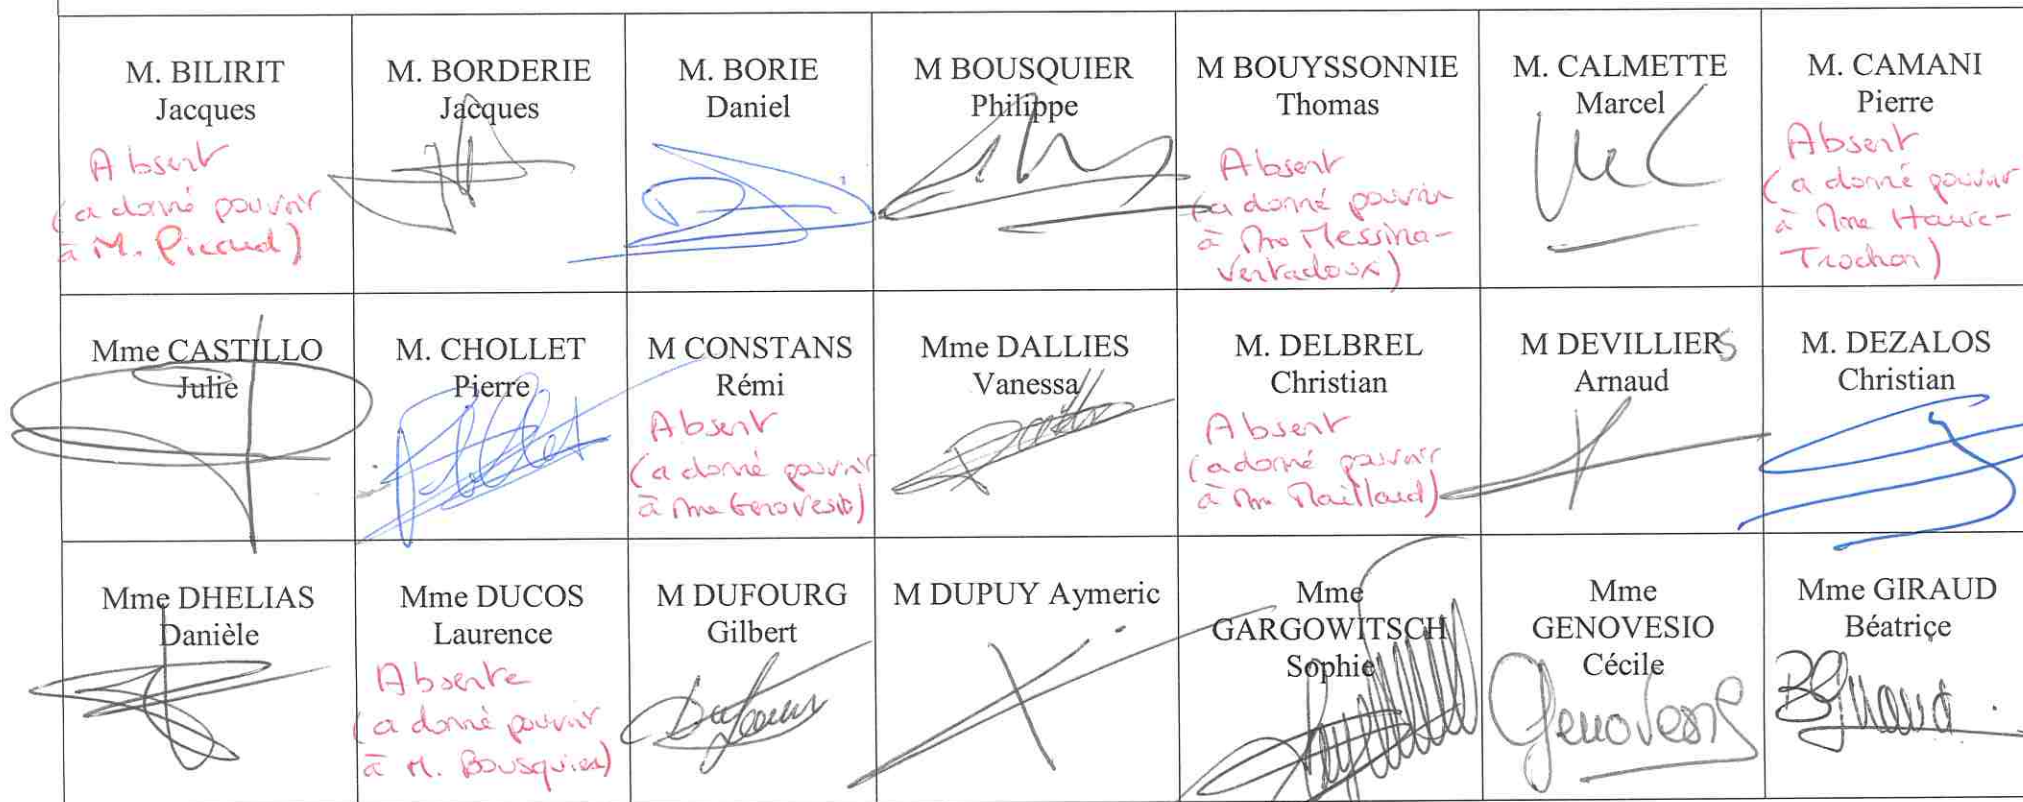 M. BILIRIT
Jacques
Absent
(a donné pouvoir
à M. Picaud)
M. BORDERIE
Jacques
M. BORIE
Daniel
M BOUSQUIER
Philippe
M BOUYSSONNIE
Thomas
Absent
(a donné pouvoir
à Mme Messina-
Ventadoux)
M. CALMETTE
Marcel
M. CAMANI
Pierre
Absent
(a donné pouvoir
à Mme Haure-
Trochon)
Mme CASTILLO
Julie
M. CHOLLET
Pierre
M CONSTANS
Rémi
Absent
(a donné pouvoir
à Mme Genovesio)
Mme DALLIES
Vanessa
M. DELBREL
Christian
Absent
(a donné pouvoir
à Mme Maillaud)
M DEVILLIERS
Arnaud
M. DEZALOS
Christian
Mme DHELIAS
Danièle
Mme DUCOS
Laurence
Absente
(a donné pouvoir
à M. Bousquier)
M DUFOURG
Gilbert
M DUPUY Aymeric
Mme
GARGOWITSCH
Sophie
Mme
GENOVESIO
Cécile
Genovesio
Mme GIRAUD
Béatrice
BGiraud